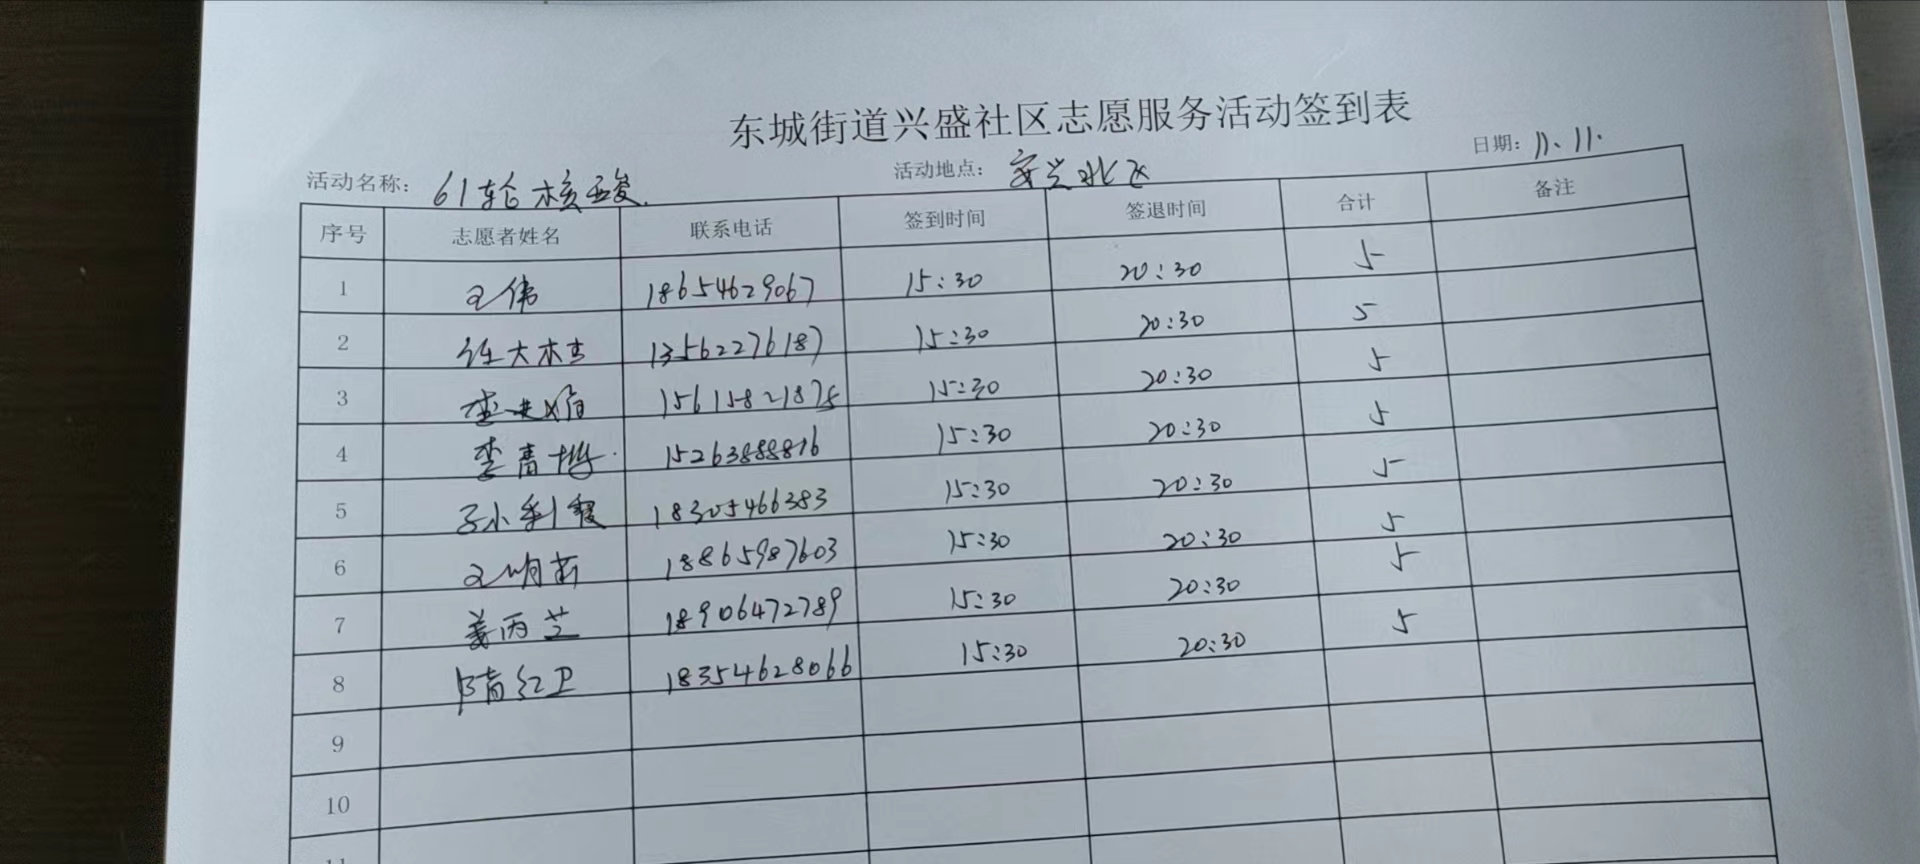 东城街道兴盛社区志愿服务活动签到表
活动名称: 61轮核酸. 活动地点: 安兴北区 日期: 11.11.
序号 志愿者姓名 联系电话 签到时间 签退时间 合计 备注
1 王伟 18654629067 15:30 20:30 5
2 任大杰 13562276187 15:30 20:30 5
3 15615821875 15:30 20:30 5
4 李青博 15263888816 15:30 20:30 5
5 孙利霞 18305466383 15:30 20:30 5
6 18865987603 15:30 20:30 5
7 姜丙芝 18906472789 15:30 20:30 5
8 隋红卫 18354628066 15:30 20:30 5
9
10
11